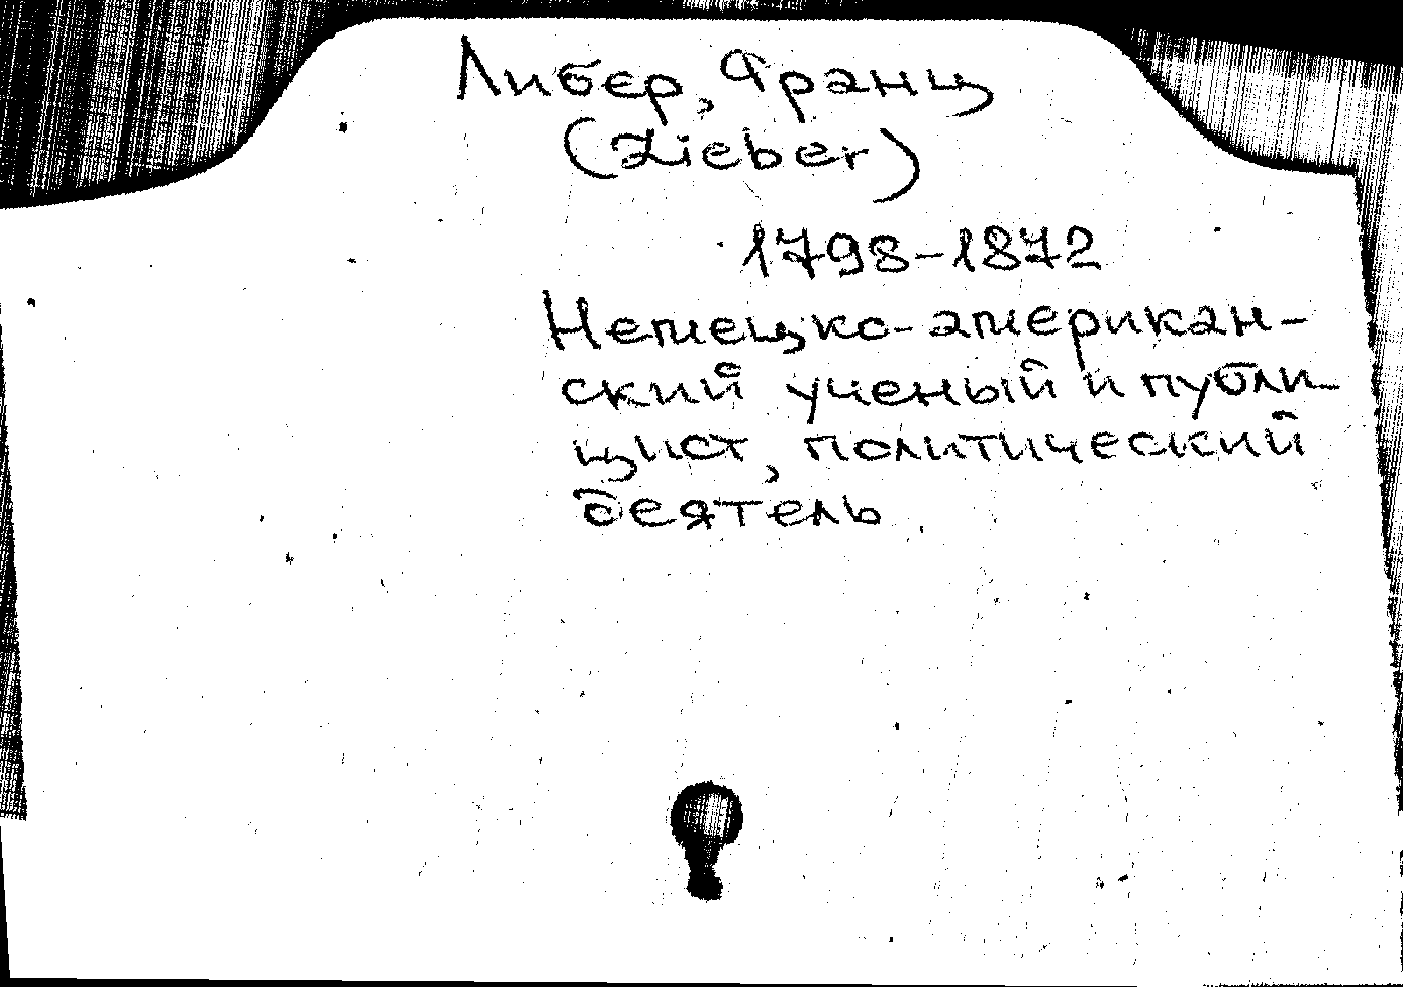 Либер, Франц
(Lieber)
1798-1872
Немецко-американ-
ский ученый и публи-
цист, политический
деятель